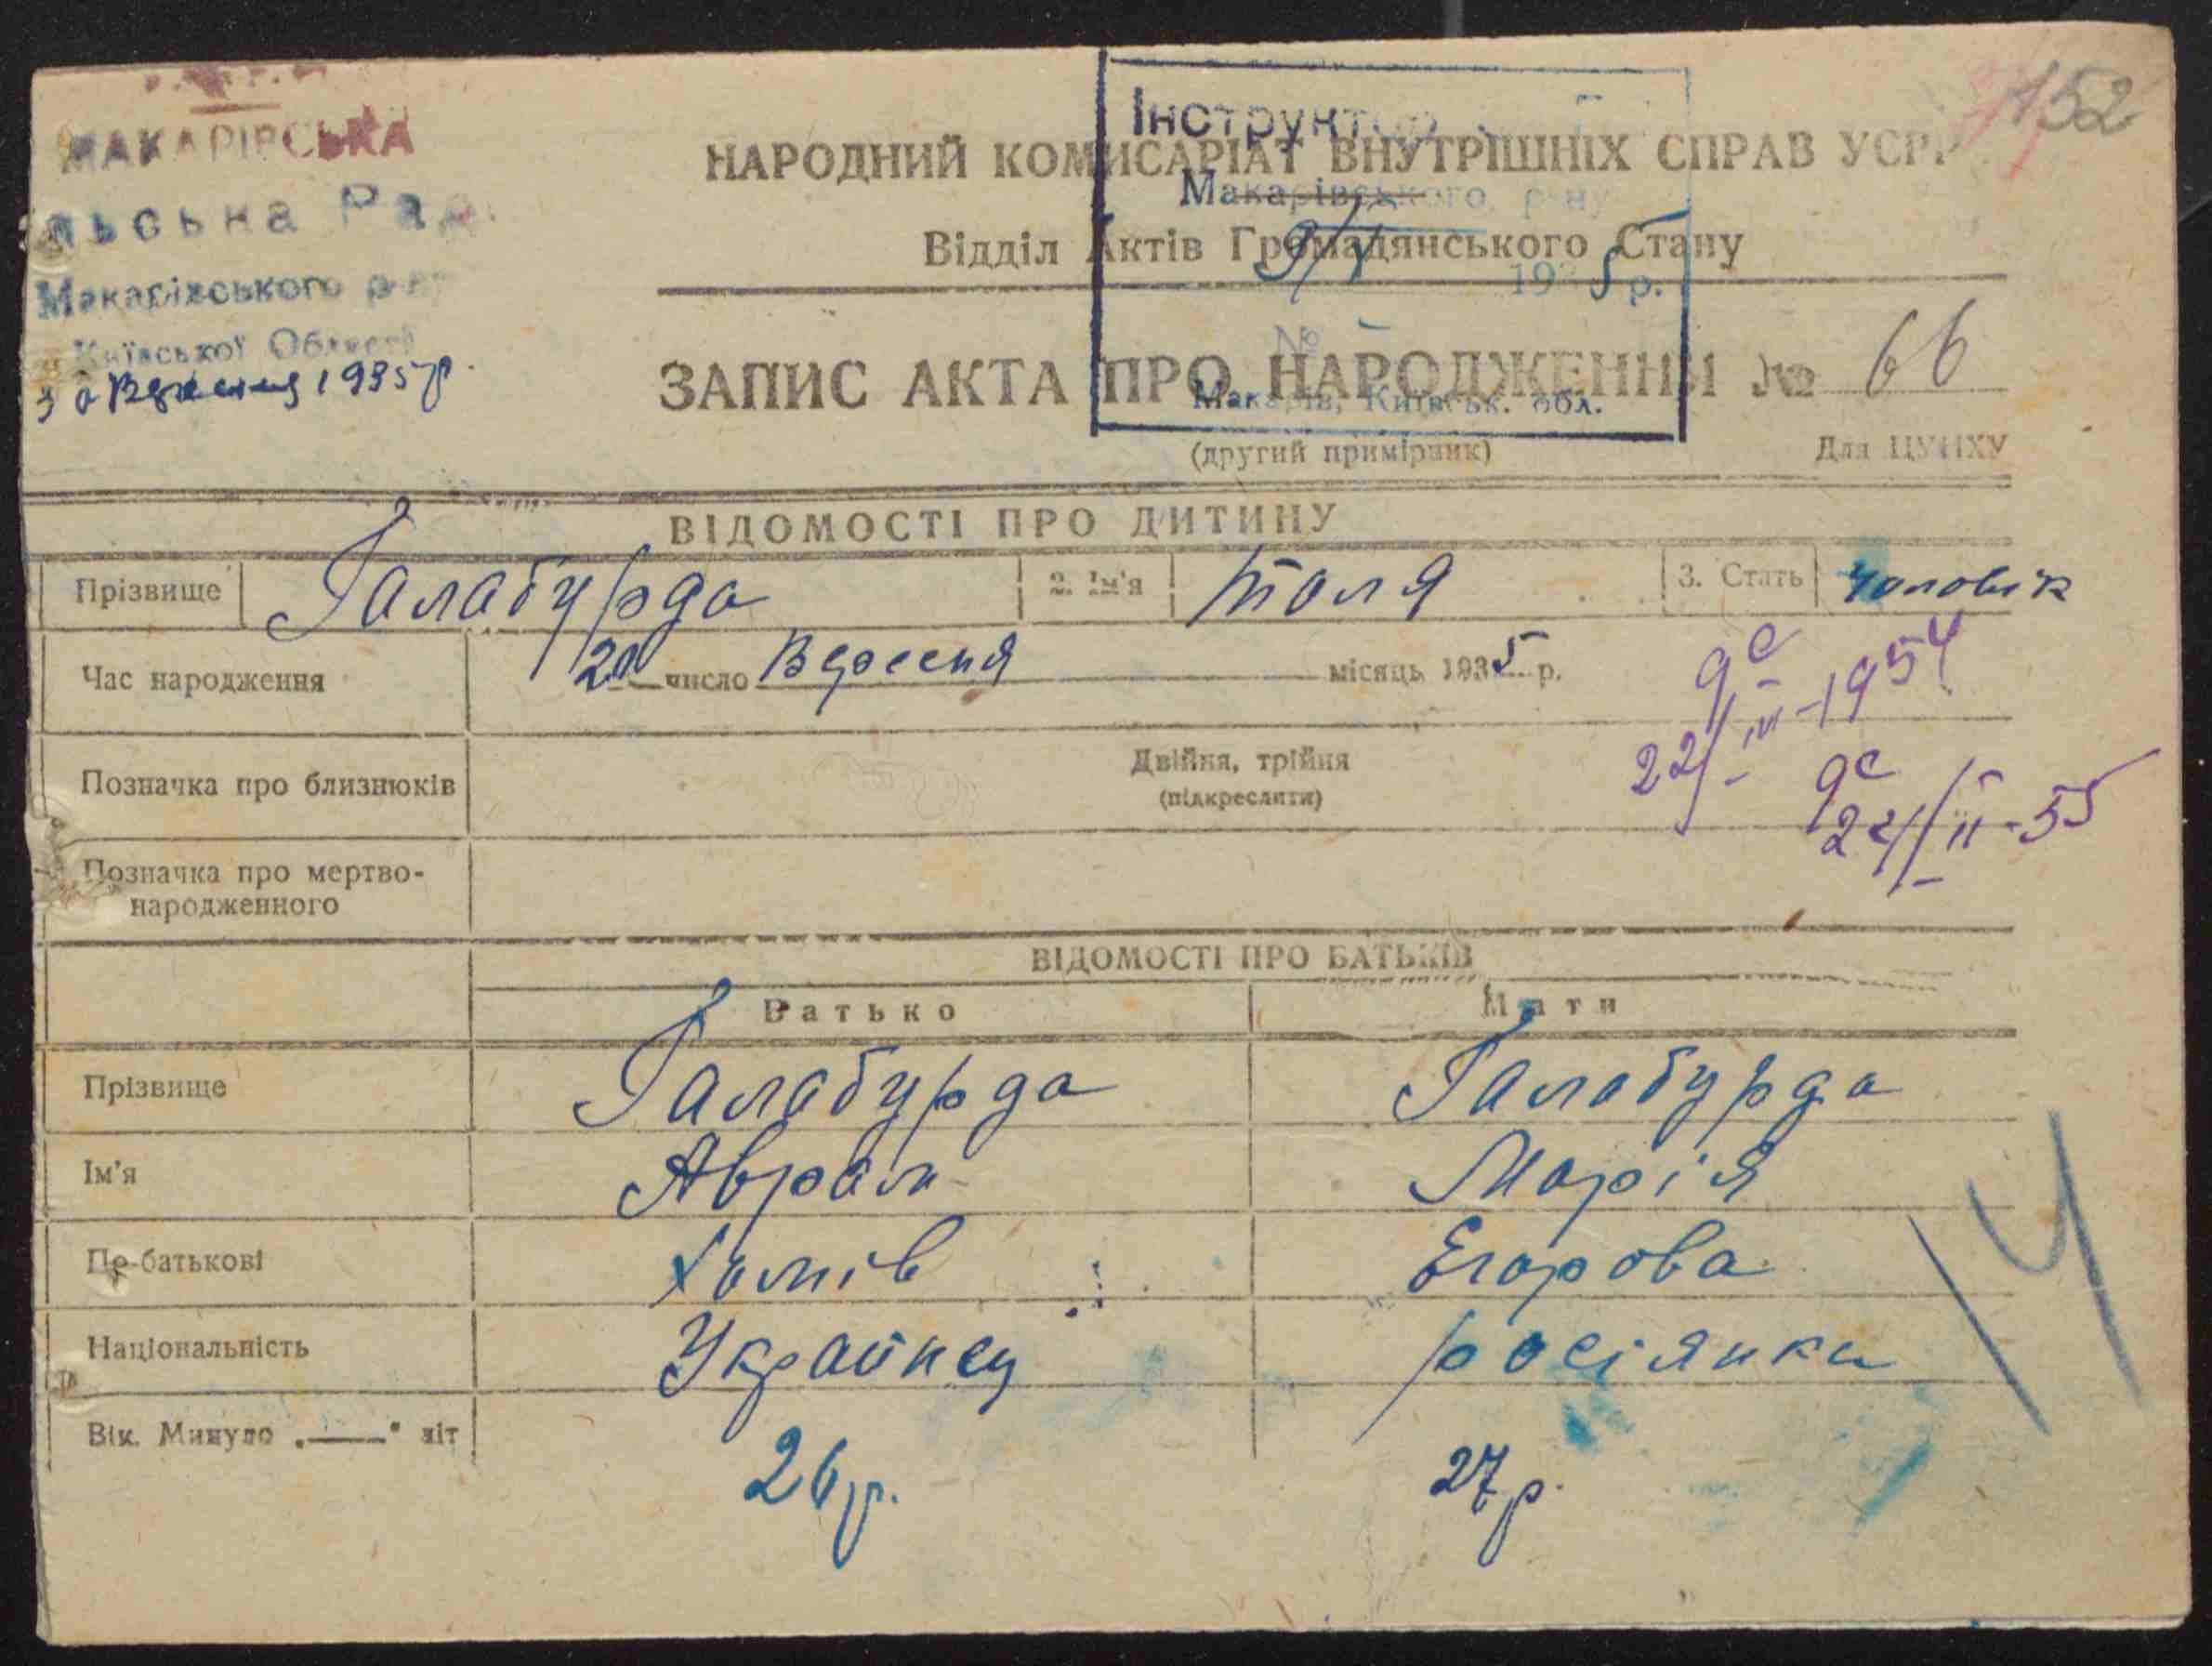 МАКАРІВСЬКА
льська Рад
Макарівського р-ну
Київської Області
30 Вересня 1935 р.
152
Інструктор
Макарівського р-ну
9/X 1935 р.
№
Макарів, Київськ. обл.
НАРОДНИЙ КОМИСАРІАТ ВНУТРІШНІХ СПРАВ УСРР
Відділ Актів Громадянського Стану
ЗАПИС АКТА ПРО НАРОДЖЕННЯ № 66
(другий примірник) Для ЦУНХУ
ВІДОМОСТІ ПРО ДИТИНУ
Прізвище Галабурда 2. Ім'я Толя 3. Стать Чоловік
Час народження 20 число Вересня місяць 1935 р.
22/III-1954
Позначка про близнюків Двійня, трійня
(підкреслити)
Позначка про мертво-
народженного
ВІДОМОСТІ ПРО БАТЬКІВ
Батько Мати
Прізвище Галабурда Галабурда
Ім'я Аврам Марія
По-батькові Хомів Егорова
Національність Украйнец росіянка
Вік. Минуло „—" літ 26 р. 27 р.
14